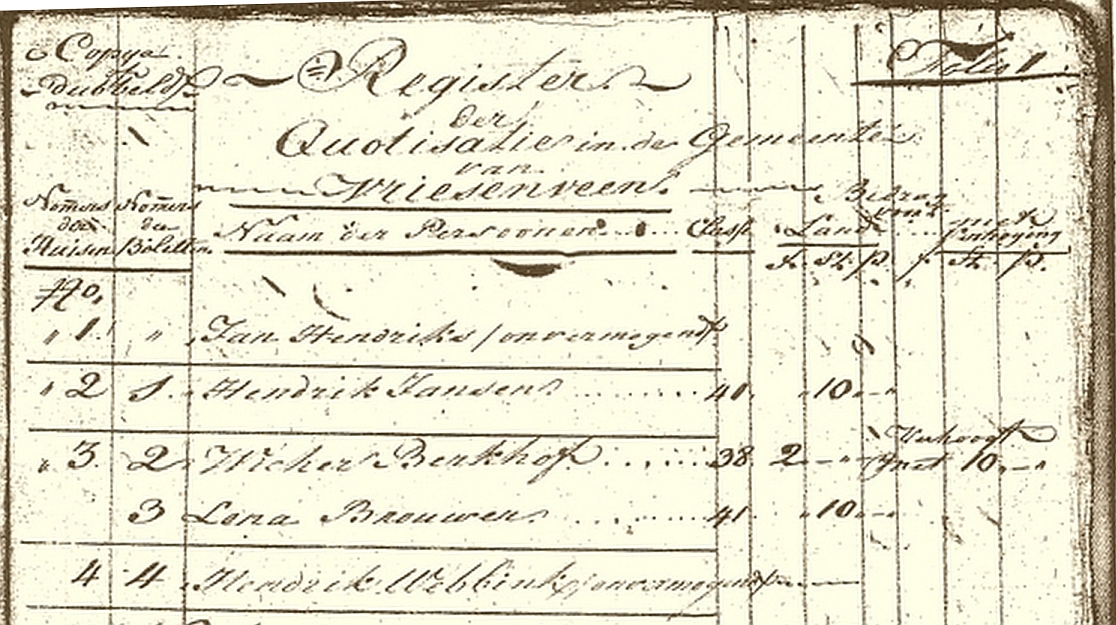 Copya
dubbeld
Register
der
Quotisatie in de Gemeente
van
Vriesenveen.
Folio 1
Nomers der Huisen
Nomers der Biletten
Naam der Persoonen
Class
Bedrag
voor
Land
met
verhoging
f. St. p. f St. p.
No.
" 1. " Jan Hendriks / onvermogend
" 2 1. Hendrik Jansen 41. " 10 " - "
" 3. 2 Wicher Berkhof 38 2 - " Verhoogt
met 10 - "
3 Lena Brouwer 41. " 10 " - "
4 4 Hendrik Webbink / onvermogend